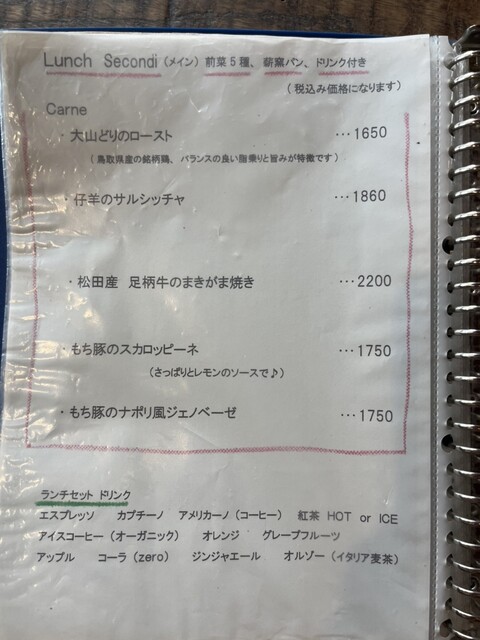 Lunch Secondi（メイン）前菜５種、薪窯パン、ドリンク付き
（税込み価格になります）
Carne
・大山どりのロースト ･･･1650
（鳥取県産の銘柄鶏、バランスの良い脂乗りと旨みが特徴です）
・仔羊のサルシッチャ ･･･1860
・松田産 足柄牛のまきがま焼き ･･･2200
・もち豚のスカロッピーネ ･･･1750
（さっぱりとレモンのソースで♪）
・もち豚のナポリ風ジェノベーゼ ･･･1750
ランチセット ドリンク
エスプレッソ カプチーノ アメリカーノ（コーヒー） 紅茶 HOT or ICE
アイスコーヒー（オーガニック） オレンジ グレープフルーツ
アップル コーラ（zero） ジンジャエール オルゾー（イタリア麦茶）